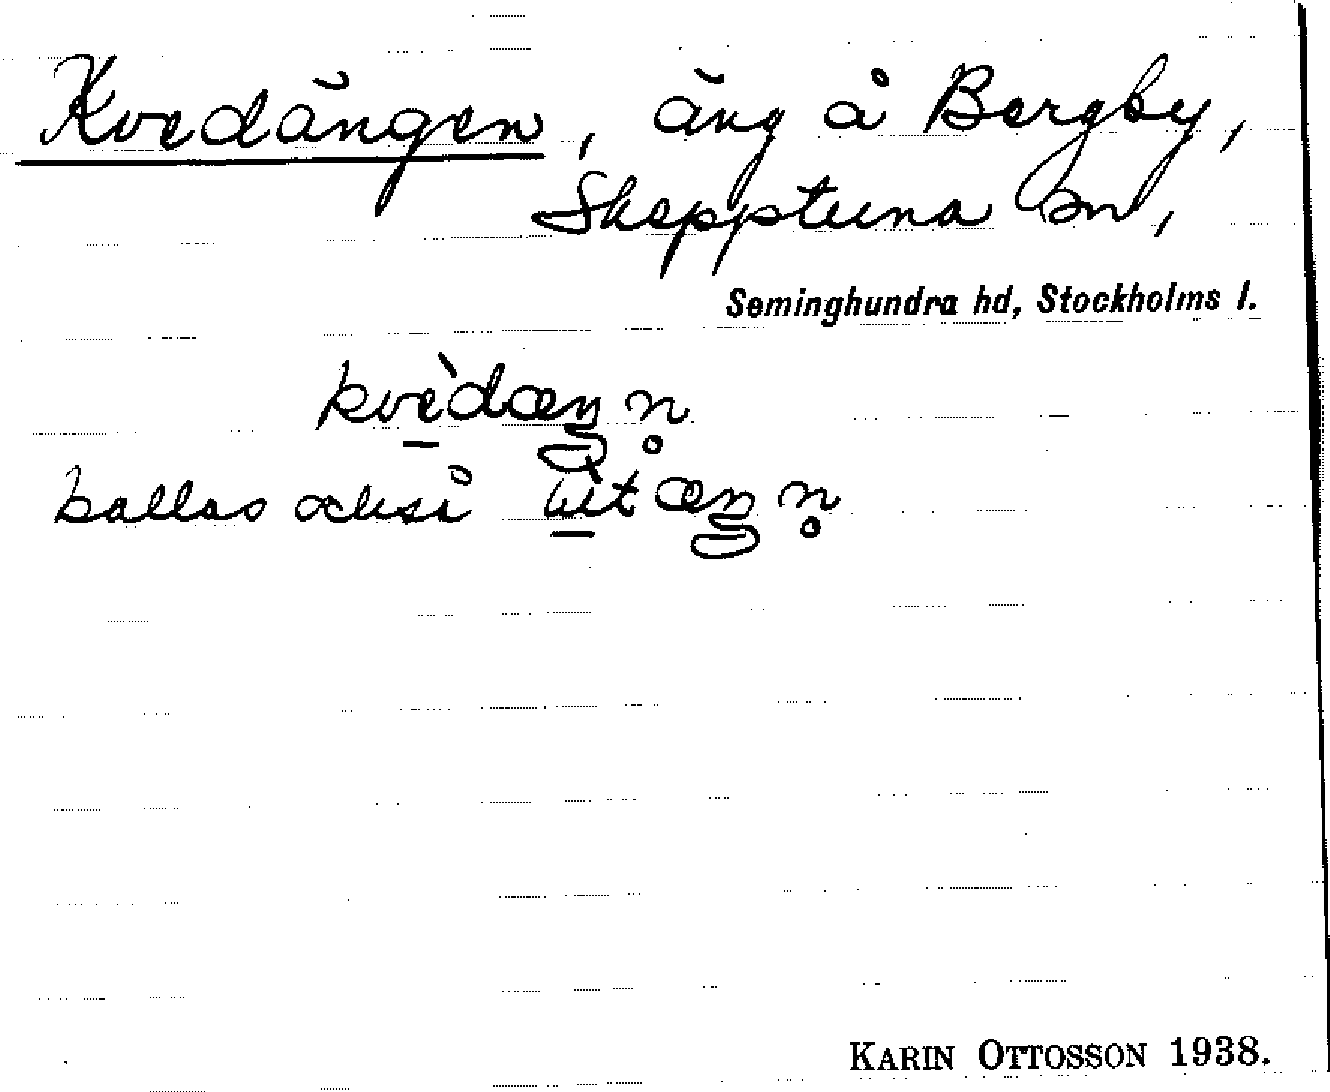 Kvedängen, äng å Bergby,
Skepptuna sn,
Seminghundra hd, Stockholms l.
kvè̱dæŋn̥
kallas också ṳ̀tæŋn̥
KARIN OTTOSSON 1938.